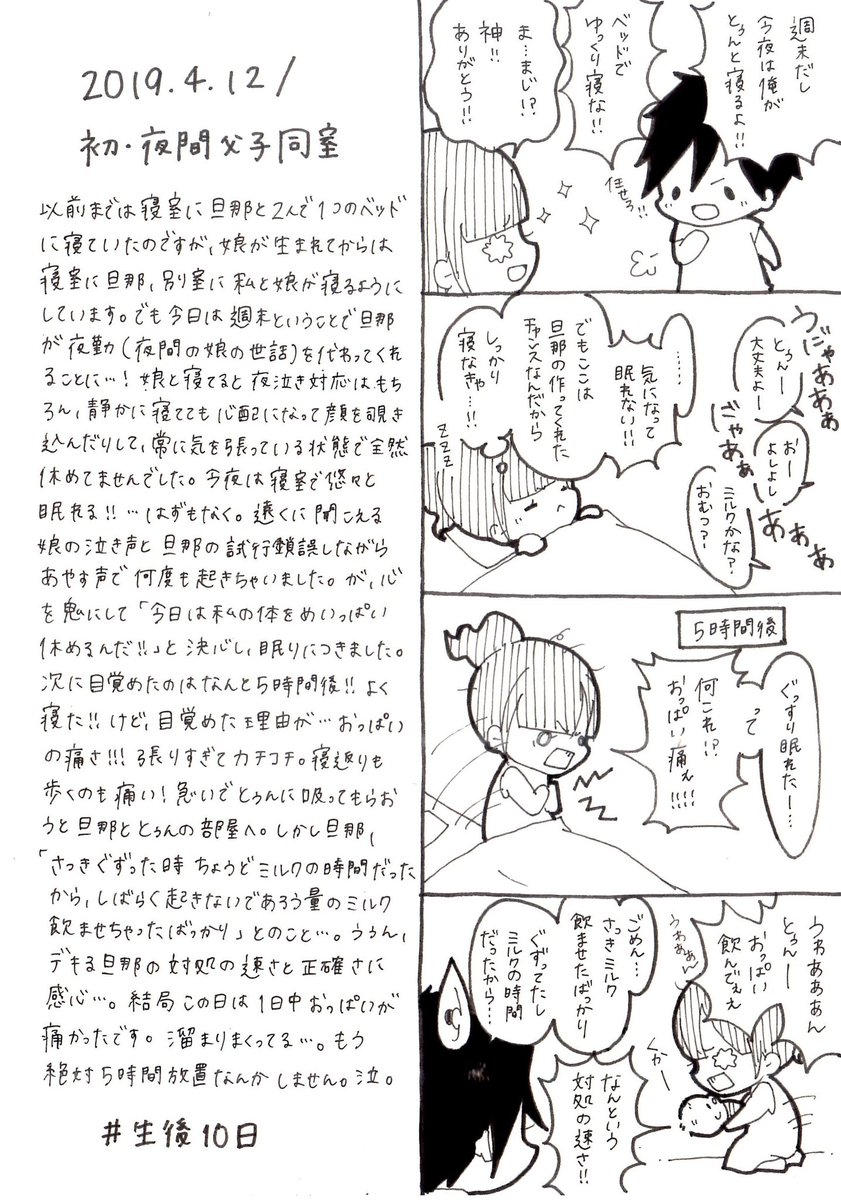 2019.4.12/
初・夜間父子同室
以前までは寝室に旦那と2人で1つのベッド
に寝ていたのですが、娘が生まれてからは
寝室に旦那、別室に私と娘が寝るように
しています。でも今日は週末ということで旦那
が夜勤(夜間の娘の世話)を代わってくれ
ることに…!娘と寝てると夜泣き対応はもち
ろん、静かに寝てても心配になって顔を覗き
込んだりして、常に気を張っている状態で全然
休めてませんでした。今夜は寝室で悠々と
眠れる!!…はずもなく。遠くに聞こえる
娘の泣き声と旦那の試行錯誤しながら
あやす声で何度も起きちゃいました。が、心
を鬼にして「今日は私の体をめいっぱい
休めるんだ!!」と決心し、眠りにつきました。
次に目覚めたのはなんと5時間後!!よく
寝た!!けど、目覚めた理由が…おっぱい
の痛さ!!!張りすぎてカチコチ。寝返りも
歩くのも痛い!急いでとぅんに吸ってもらお
うと旦那ととぅんの部屋へ。しかし旦那、
「さっきぐずった時ちょうどミルクの時間だった
から、しばらく起きないであろう量のミルク
飲ませちゃったばっかり」とのこと…。うぅん、
デキる旦那の対処の速さと正確さに
感心…。結局この日は1日中おっぱいが
痛かったです。溜まりまくってる…。もう
絶対5時間放置なんかしません。泣。
#生後10日
週末だし
今夜は俺が
とぅんと寝るよ!!
ベッドで
ゆっくり寝な!!
任せろ!!
ま…まじ!?
神!!
ありがとう!!
うにゃあああぁ
とぅんー
大丈夫よー
ぎゃあぁ
おー
よしよし
あぁぁ
ミルクかな?
おむつ?
……
気になって
眠れない!!
でもここは
旦那の作ってくれた
チャンスなんだから
しっかり
寝なきゃ…!!
zzzz
5時間後
ぐっすり眠れたー…
って
何これ!?
おっぱい痛ぇ!!!!
うわぁぁぁん
とぅんー
おっぱい
飲んでぇぇ
うわぁぁん
くかー
ごめん…
さっきミルク
飲ませたばっかり
ぐずってたし
ミルクの時間
だったから…
なんという
対処の速さ!!